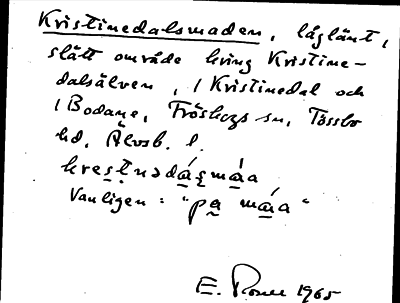 Kristinedalsmaden, låglänt,
slätt område kring Kristine-
dalsälven, i Kristinedal och
i Bodane, Fröskogs sn, Tössbo
hd, Älvsb. l.
Vanligen: "på máa"
E. 1965